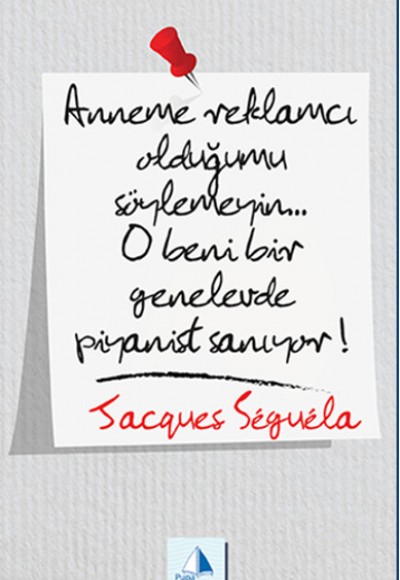 Anneme reklamcı
olduğumu
söylemeyin...
O beni bir
genelevde
piyanist sanıyor!
Jacques Séguéla
Pupa